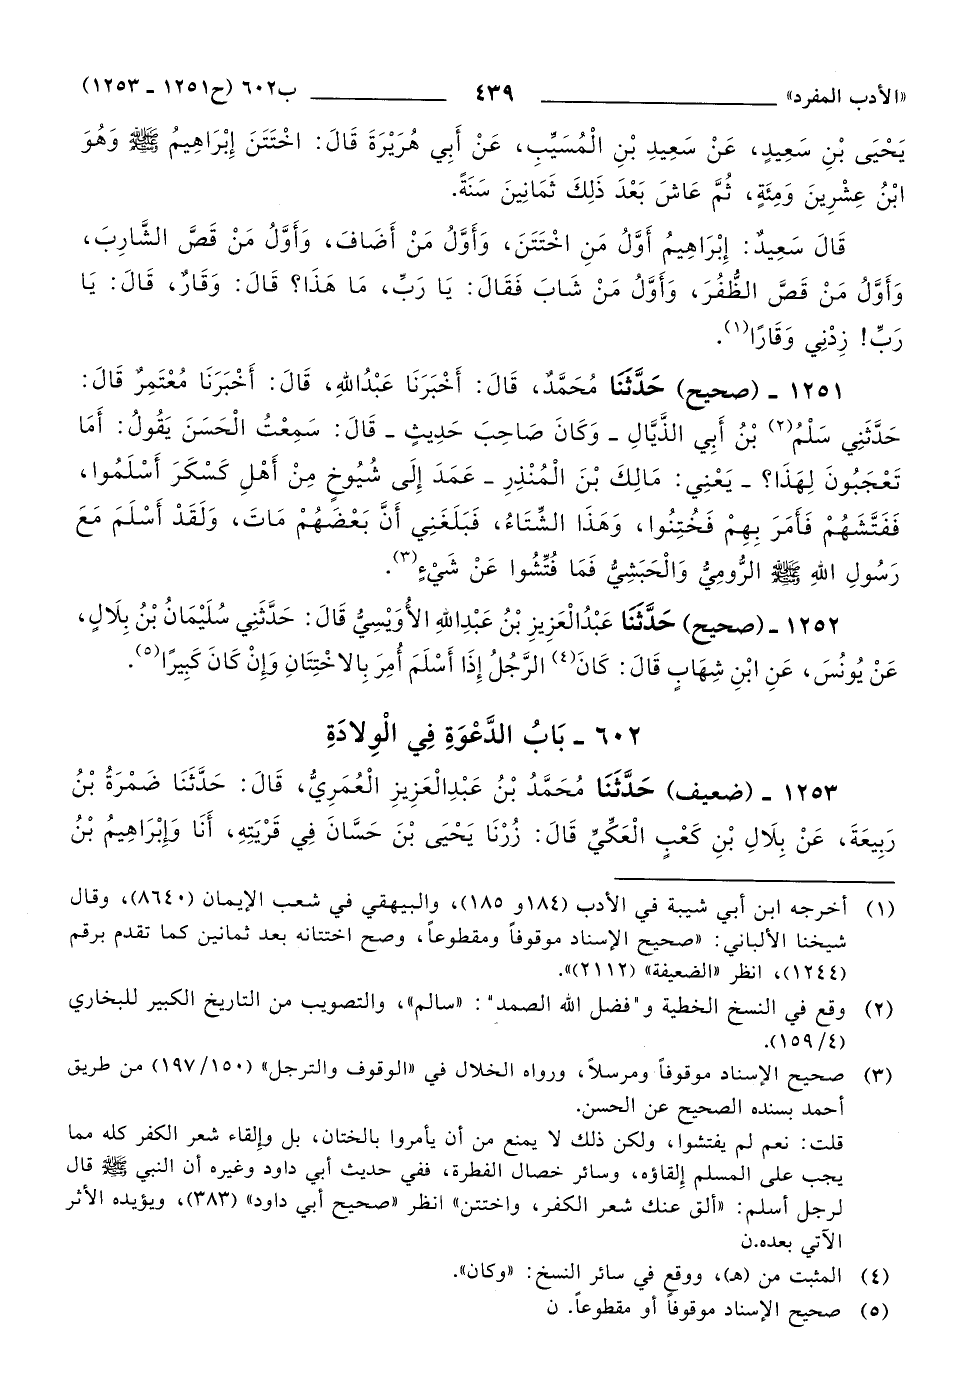 «الأدب المفرد» ٤٣٩ ب٦٠٢ (ح١٢٥١ ـ ١٢٥٣)
يَحْيَى بْنِ سَعِيدٍ، عَنْ سَعِيدِ بْنِ الْمُسَيِّبِ، عَنْ أَبِي هُرَيْرَةَ قَالَ: اخْتَتَنَ إِبْرَاهِيمُ ﷺ وَهُوَ
ابْنُ عِشْرِينَ وَمِئَةٍ، ثُمَّ عَاشَ بَعْدَ ذَلِكَ ثَمَانِينَ سَنَةً.
قَالَ سَعِيدٌ: إِبْرَاهِيمُ أَوَّلُ مَنِ اخْتَتَنَ، وَأَوَّلُ مَنْ أَضَافَ، وَأَوَّلُ مَنْ قَصَّ الشَّارِبَ،
وَأَوَّلُ مَنْ قَصَّ الظُّفُرَ، وَأَوَّلُ مَنْ شَابَ فَقَالَ: يَا رَبِّ، مَا هَذَا؟ قَالَ: وَقَارٌ، قَالَ: يَا
رَبِّ! زِدْنِي وَقَارًا(١).
١٢٥١ ـ (صحيح) حَدَّثَنَا مُحَمَّدٌ، قَالَ: أَخْبَرَنَا عَبْدُاللهِ، قَالَ: أَخْبَرَنَا مُعْتَمِرٌ قَالَ:
حَدَّثَنِي سَلْمُ(٢) بْنُ أَبِي الذَّيَّالِ ـ وَكَانَ صَاحِبَ حَدِيثٍ ـ قَالَ: سَمِعْتُ الْحَسَنَ يَقُولُ: أَمَا
تَعْجَبُونَ لِهَذَا؟ ـ يَعْنِي: مَالِكَ بْنَ الْمُنْذِرِ ـ عَمَدَ إِلَى شُيُوخٍ مِنْ أَهْلِ كَسْكَرَ أَسْلَمُوا،
فَفَتَّشَهُمْ فَأَمَرَ بِهِمْ فَخُتِنُوا، وَهَذَا الشِّتَاءُ، فَبَلَغَنِي أَنَّ بَعْضَهُمْ مَاتَ، وَلَقَدْ أَسْلَمَ مَعَ
رَسُولِ اللهِ ﷺ الرُّومِيُّ وَالْحَبَشِيُّ فَمَا فُتِّشُوا عَنْ شَيْءٍ(٣).
١٢٥٢ ـ (صحيح) حَدَّثَنَا عَبْدُالْعَزِيزِ بْنُ عَبْدِاللهِ الأُوَيْسِيُّ قَالَ: حَدَّثَنِي سُلَيْمَانُ بْنُ بِلَالٍ،
عَنْ يُونُسَ، عَنِ ابْنِ شِهَابٍ قَالَ: كَانَ(٤) الرَّجُلُ إِذَا أَسْلَمَ أُمِرَ بِالاخْتِتَانِ وَإِنْ كَانَ كَبِيرًا(٥).
٦٠٢ ـ بَابُ الدَّعْوَةِ فِي الْوِلادَةِ
١٢٥٣ ـ (ضعيف) حَدَّثَنَا مُحَمَّدُ بْنُ عَبْدِالْعَزِيزِ الْعُمَرِيُّ، قَالَ: حَدَّثَنَا ضَمْرَةُ بْنُ
رَبِيعَةَ، عَنْ بِلَالِ بْنِ كَعْبٍ الْعَكِّيِّ قَالَ: زُرْنَا يَحْيَى بْنَ حَسَّانَ فِي قَرْيَتِهِ، أَنَا وَإِبْرَاهِيمُ بْنُ
(١) أخرجه ابن أبي شيبة في الأدب (١٨٤ و ١٨٥)، والبيهقي في شعب الإيمان (٨٦٤٠)، وقال
شيخنا الألباني: «صحيح الإسناد موقوفاً ومقطوعاً، وصح اختتانه بعد ثمانين كما تقدم برقم
(١٢٤٤)، انظر «الضعيفة» (٢١١٢)».
(٢) وقع في النسخ الخطية و"فضل الله الصمد": «سالم»، والتصويب من التاريخ الكبير للبخاري
(٤/١٥٩).
(٣) صحيح الإسناد موقوفاً ومرسلاً، ورواه الخلال في «الوقوف والترجل» (١٩٧/١٥٠) من طريق
أحمد بسنده الصحيح عن الحسن.
قلت: نعم لم يفتشوا، ولكن ذلك لا يمنع من أن يأمروا بالختان، بل وإلقاء شعر الكفر كله مما
يجب على المسلم إلقاؤه، وسائر خصال الفطرة، ففي حديث أبي داود وغيره أن النبي ﷺ قال
لرجل أسلم: «ألق عنك شعر الكفر، واختتن» انظر «صحيح أبي داود» (٣٨٣)، ويؤيده الأثر
الآتي بعده.ن
(٤) المثبت من (هـ)، ووقع في سائر النسخ: «وكان».
(٥) صحيح الإسناد موقوفاً أو مقطوعاً. ن